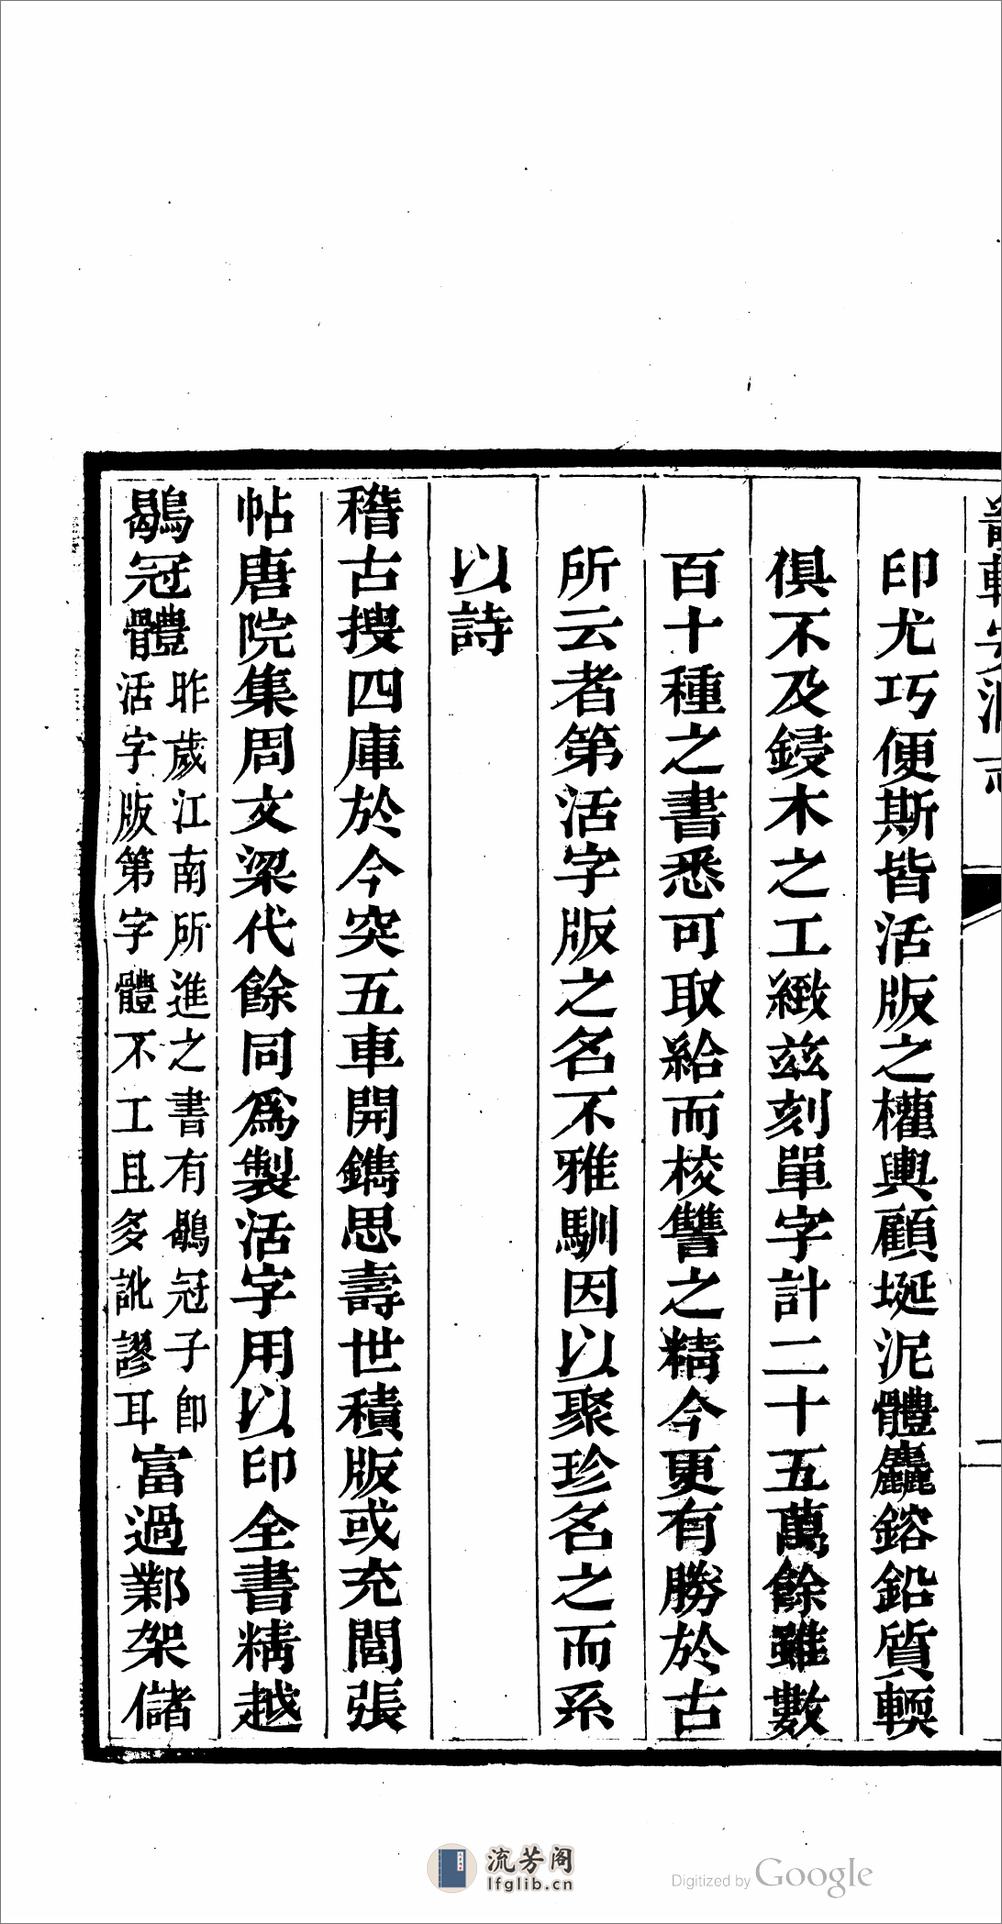 印尤巧便斯皆活版之權輿顧埏泥體麤鎔鉛質輭
俱不及鋟木之工緻兹刻單字計二十五萬餘雖數
百十種之書悉可取給而校讐之精今更有勝於古
所云者第活字版之名不雅馴因以聚珍名之而系
以詩
稽古搜四庫於今突五車開鐫思壽世積版或充閭張
帖唐院集周文梁代餘同爲製活字用以印全書精越
鶡冠體
昨歲江南所進之書有鶡冠子卽
活字版第字體不工且多訛謬耳
富過鄴架儲
二
流芳阁
lfglib.cn
Digitized by Google